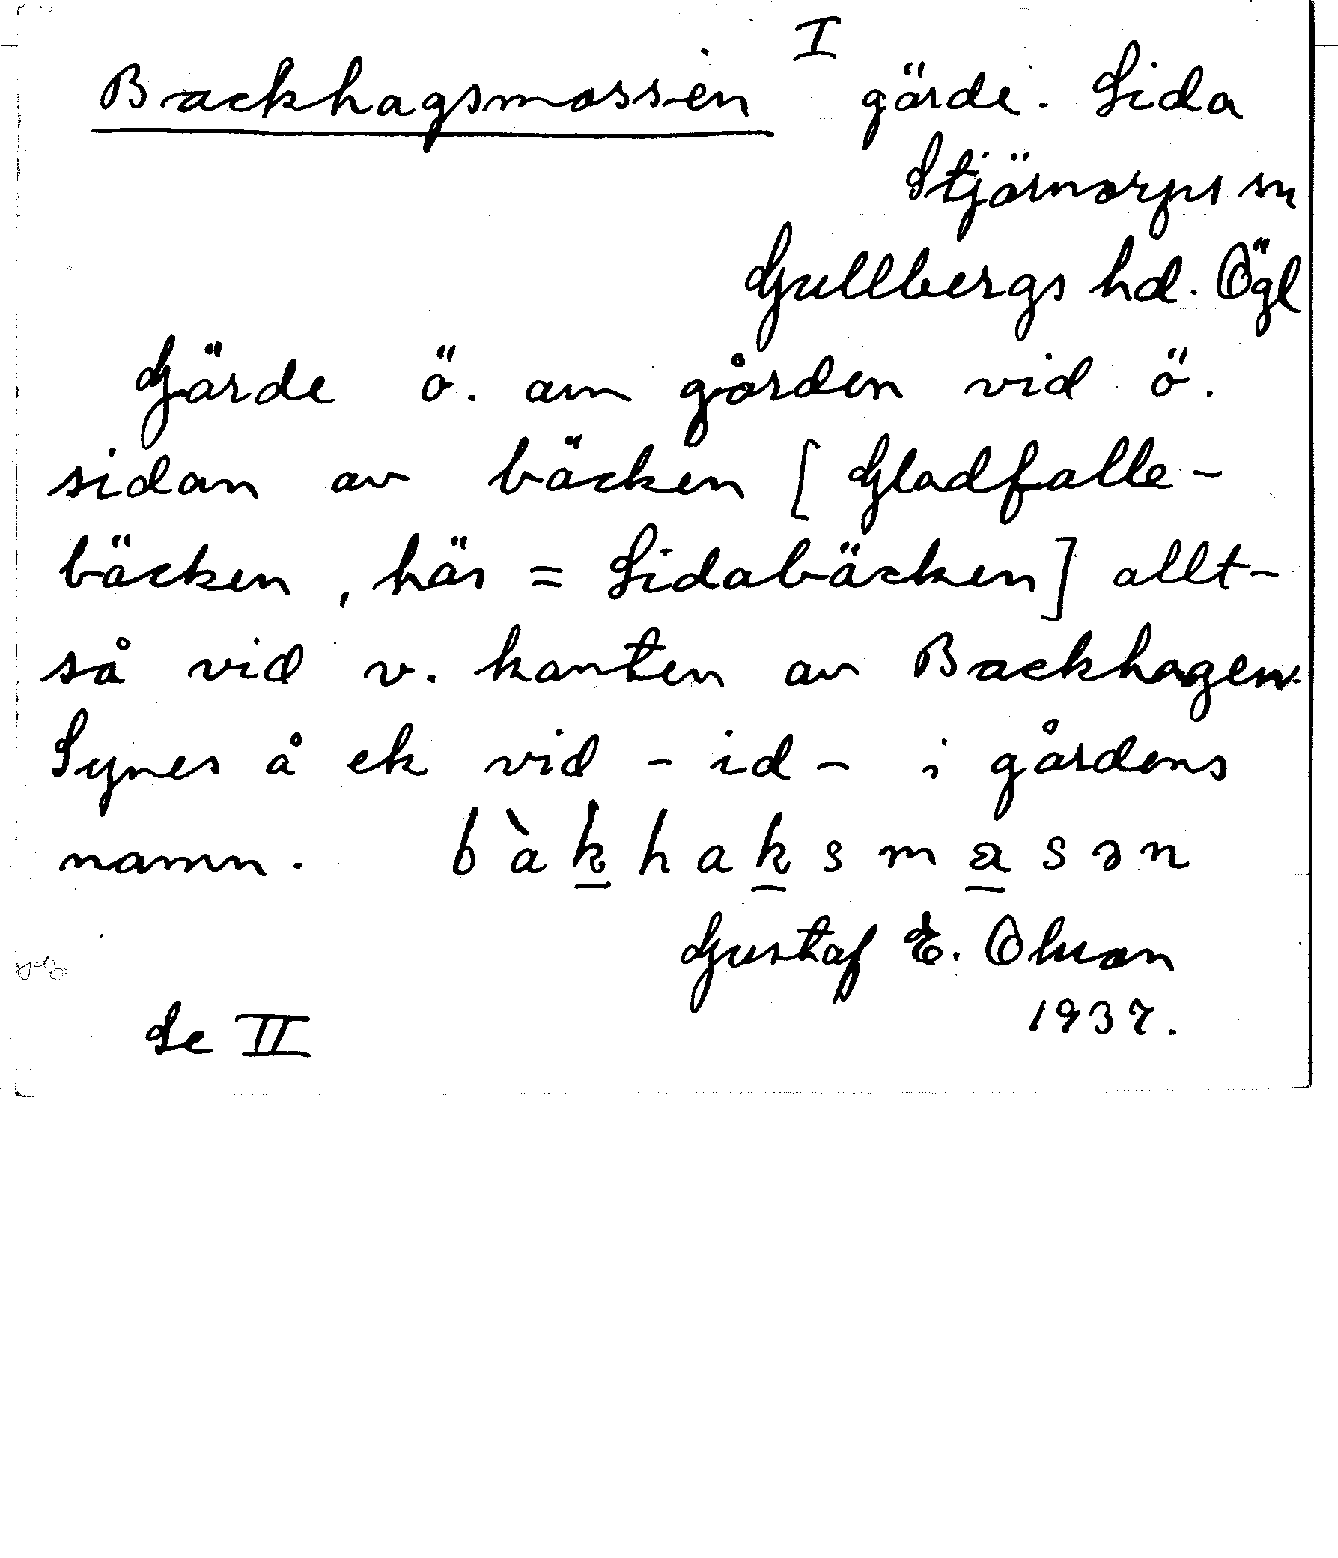 Backhagsmossen I gärde. Sida
Stjärnorps sn
Gullbergs hd. Ögl
Gärde ö. om gården vid ö.
sidan av bäcken [Gladfalle-
bäcken, här = Sidabäcken] allt-
så vid v. kanten av Backhagen.
Synes å ek vid -id- i gårdens
namn. bàk̲hak̲sma̲sən
Gustaf E. Olsson
1937.
Se II